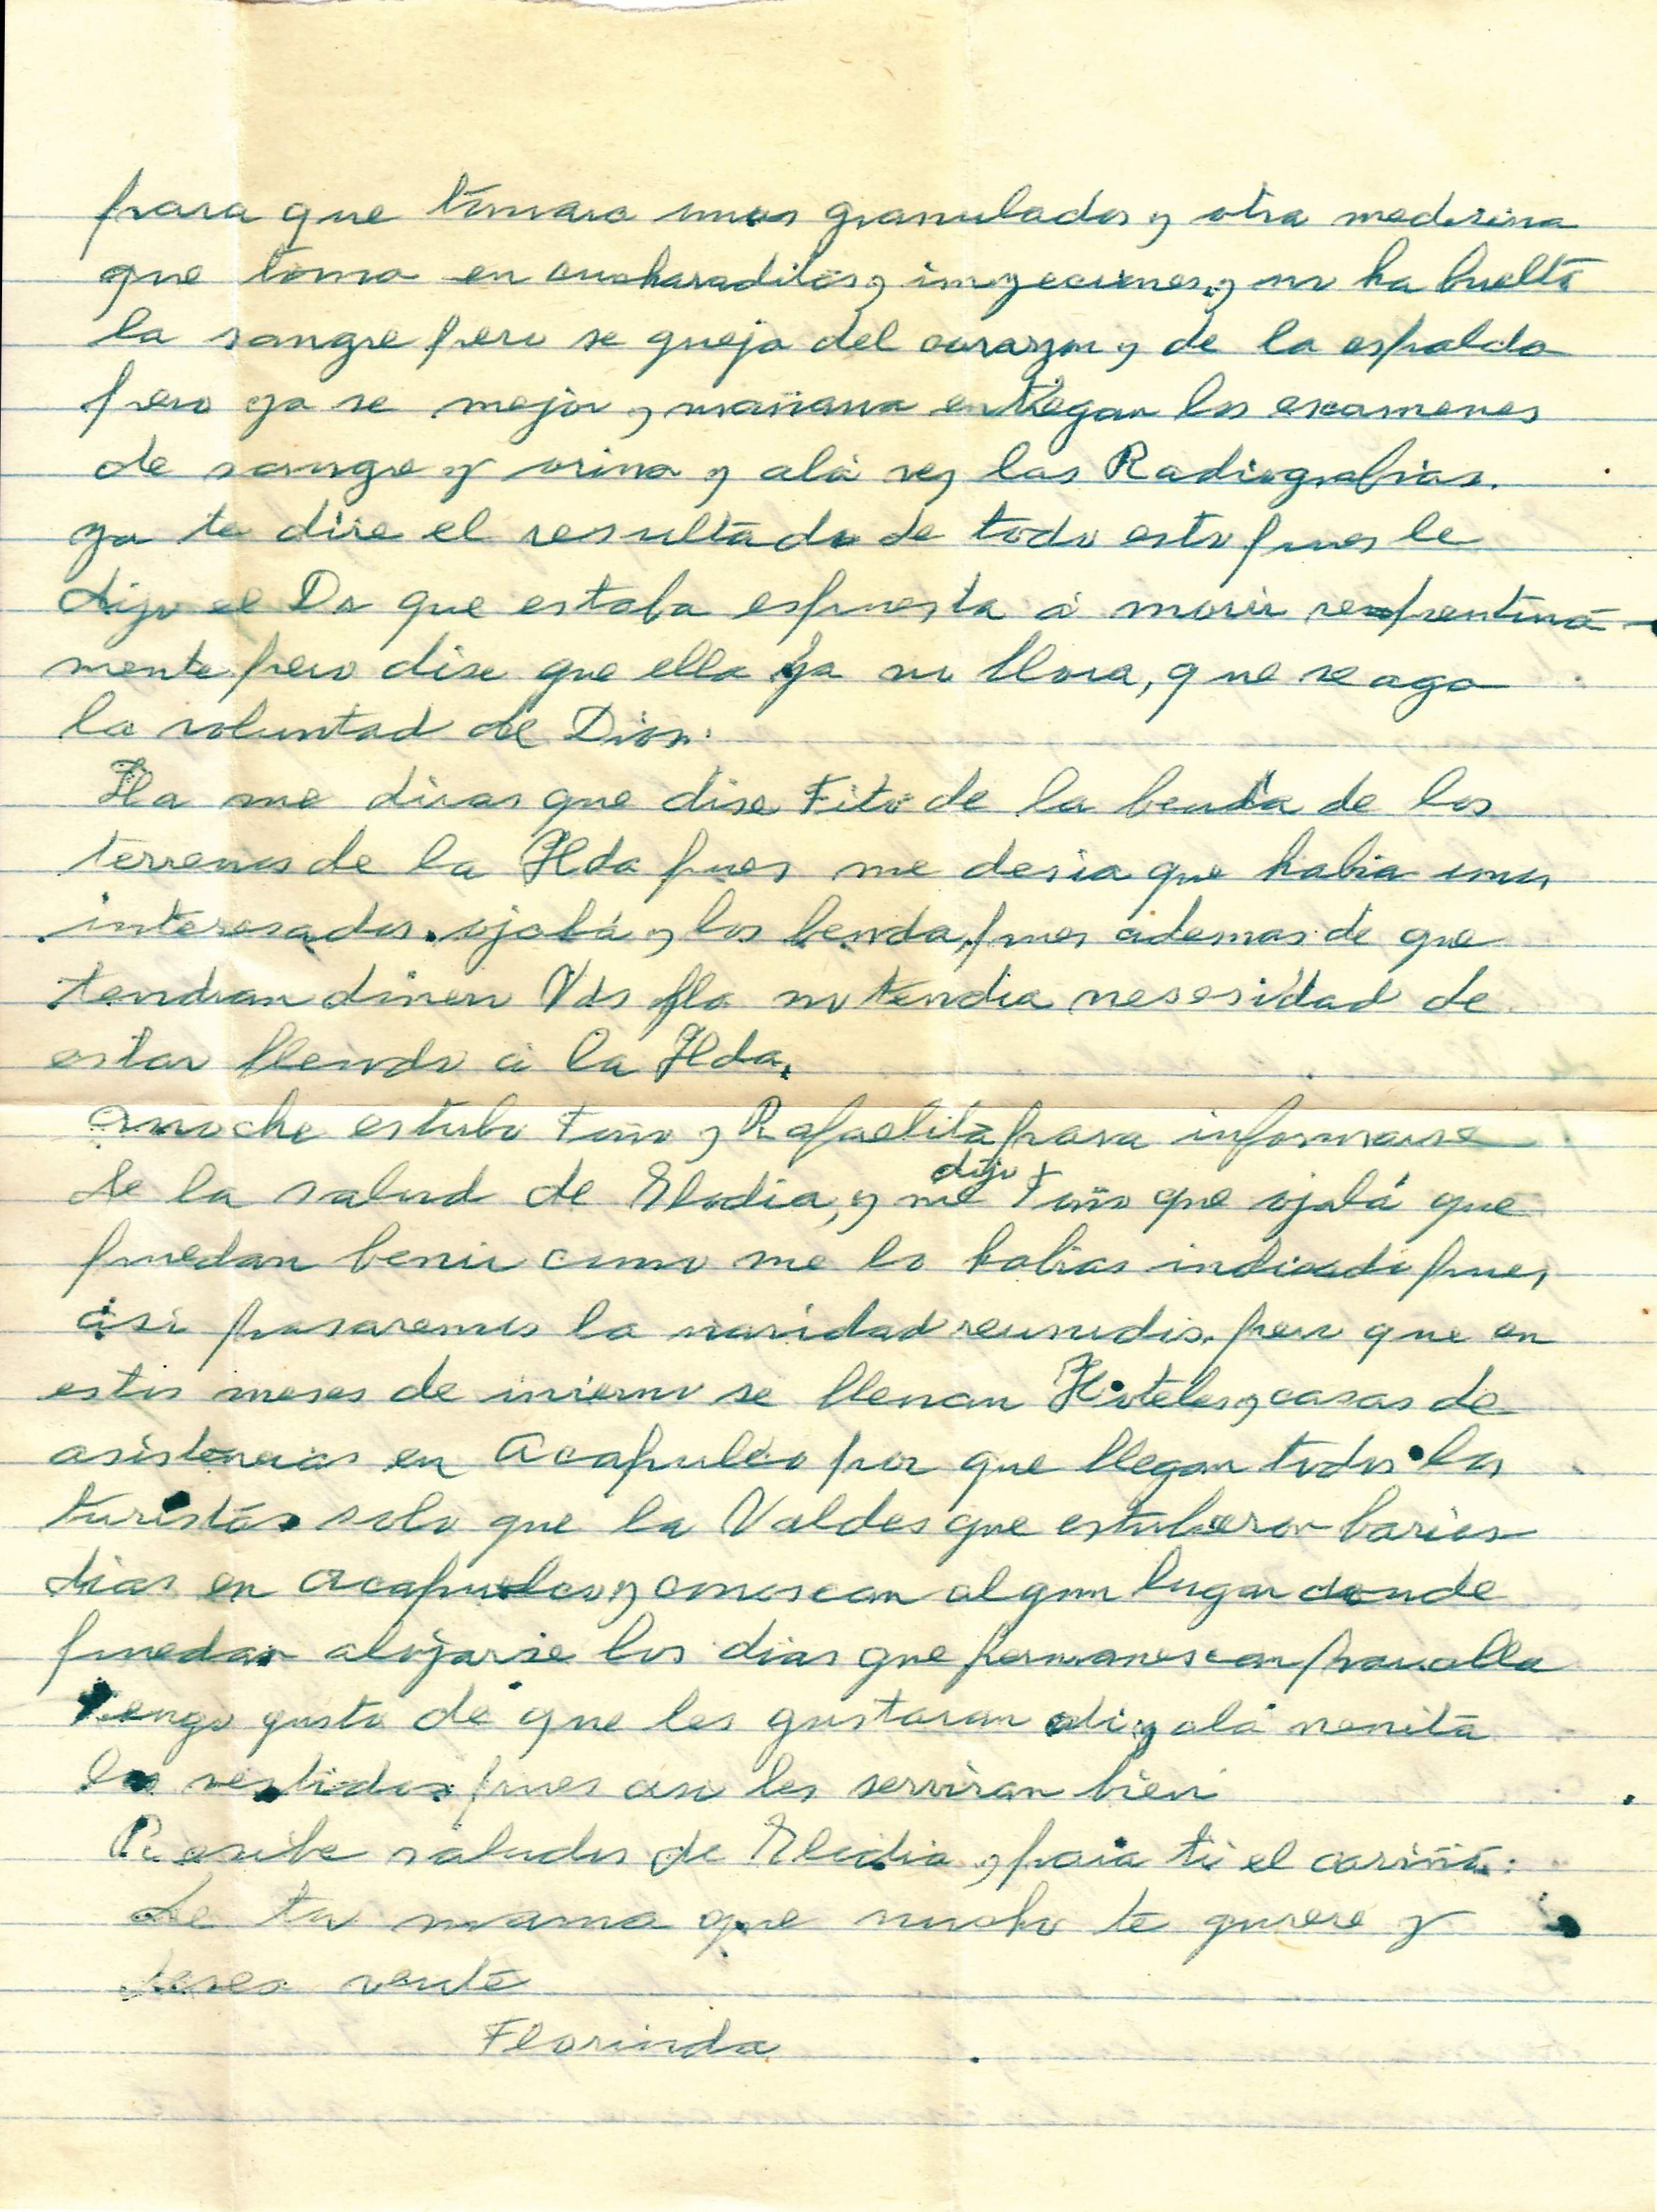 para que tomara unos granulados y otra medisina
que toma en cucharaditas y inyeciones, y no ha buelto
la sangre pero se queja del corazon y de la espalda
pero ya se mejor y mañana entregan los examenes
de sangre y orina y alá vez las Radiografias.
ya te dire el resultado de todo esto pues le
dijo el Dr que estaba espuesta á morir repentina-
mente pero dise que ella ya no llora, que se aga
la voluntad de Dios.
Ya me diras que dise Fito de la benta de los
terrenos de la Hda pues me desia que habia unos
interesados. ojalá y los benda, pues ademas de que
tendran dinero Vds no tendia nesesidad de
estar llendo á la Hda.
anoche estubo Toño y Rafaelita para informarse
de la salud de Elodia, y me dijo Toño que ojalá que
puedan benir como me lo habias indicado pues
ási pasaremos la navidad reunidos. pero que en
estos meses de invierno se llenan Hoteles y casas de
asistencias en Acapulco por que llegan todos los
turistás solo que la Valdes que estubieron barios
dias en Acapulco y conoscan algun lugar donde
puedan alojarse los dias que permanescan por alla
Tengo gusto de que les gustaran ati y alá nenita
los vestidos pues asi les serviran bien
Resibe saludos de Elodia y para tí el cariño:
de tu mama que mucho te quiere y
desea verte
Florinda